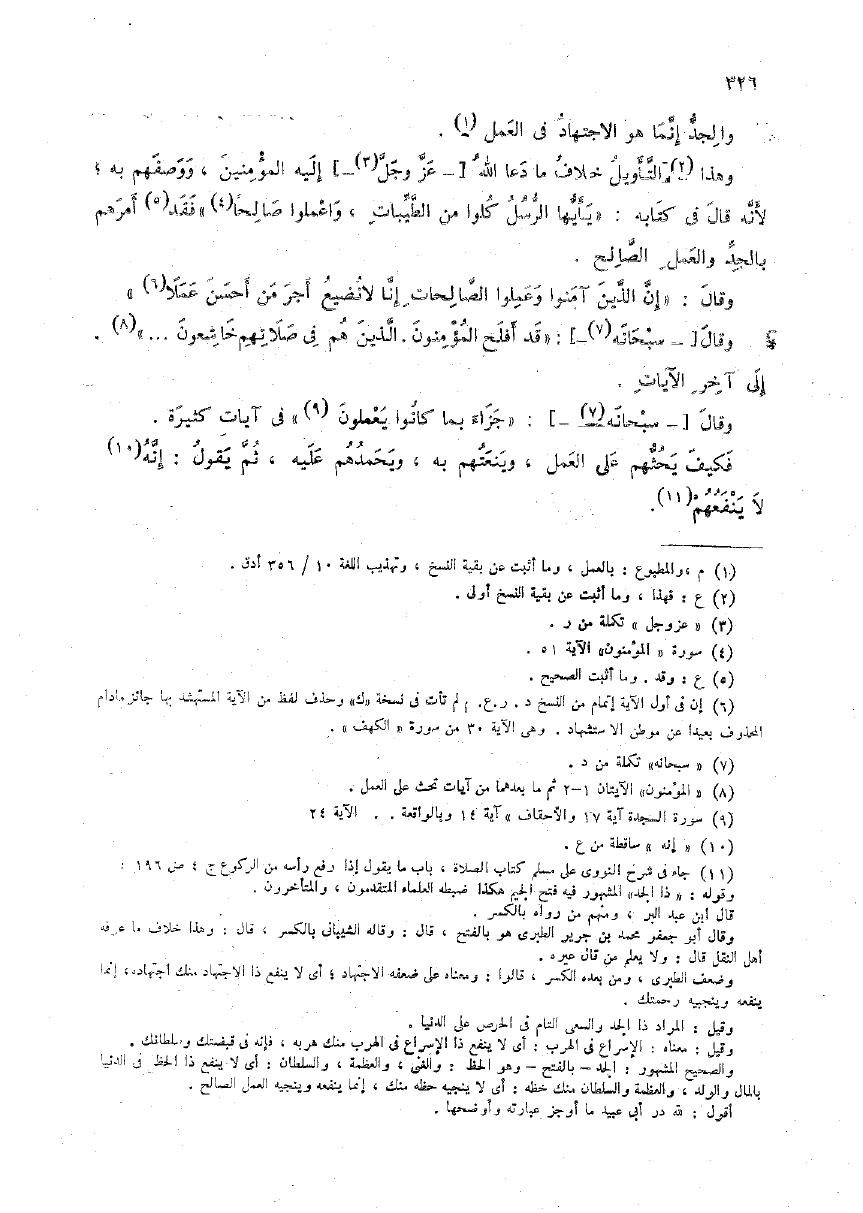 ٣٢٦
والجِدُّ إنَّمَا هو الاجتهادُ فى العَمل (١) .
وهذا (٢) التَّأويلُ خلافُ ما دَعا اللهُ [ ـ عَزَّ وجَلَّ(٣) ـ ] إلَيه المؤْمنينَ ، وَوَصفَهم به ؛
لأنَّه قالَ فى كتَابه : «يَأَيُّها الرُّسُلُ كُلوا من الطَّيِّبات ، وَاعْملوا صَالِحاً(٤)» فَقَد(٥) أمرَهم
بالجِدِّ والعَمل الصَّالِح .
وقالَ : «إنَّ الَّذينَ آمَنوا وَعَمِلوا الصَّالِحات إنَّا لانُضيعُ أجرَ مَن أحسَنَ عَمَلًا(٦) »
وقالَ [ ـ سبْحَانَه(٧) ـ ] : «قَد أفلَح المُؤْمِنونَ . الَّذينَ هُم فِى صَلَاتِهِم خَاشِعونَ ... »(٨) .
إلَى آخِرِ الآيات .
وقالَ [ ـ سبْحَانَه(٧) ـ ] : «جَزَاءً بما كانُوا يَعْملونَ (٩) » فى آيات كثيرَة .
فَكيفَ يَحُثُّهم عَلى العَمل ، ويَنعَتُهم به ، ويَحَمدُهم عَلَيه ، ثُمَّ يَقولُ : إنَّهُ(١٠)
لاَ يَنْفَعُهُمْ(١١).
(١) م ،والمطبوع : بالعمل ، وما أثبت عن بقية النسخ ، وتهذيب اللغة ١٠ / ٣٥٦ أدق .
(٢) ع : فهذا ، وما أثبت عن بقية النسخ أولى .
(٣) « عزوجل » تكلة من ر .
(٤) سورة « المؤمنون» الآية ٥١ .
(٥) ع : وقد . وما أثبت الصحيح .
(٦) إن فى أول الآية إتمام من النسخ د . ر.ع. م لم تأت فى نسخة «ك» وحذف لفظ من الآية المستشهد بها جائز مادام
المحذوف بعيدا عن موطن الاستشهاد . وهى الآية ٣٠ من سورة « الكهف » .
(٧) « سبحانه» تكلة من د .
(٨) « المؤمنون» الآيتان ١–٢ ثم ما بعدهما من آيات تحث على العمل .
(٩) سورة السجدة آية ١٧ والأحقاف » آية ١٤ وبالواقعة . . الآية ٢٤
(١٠) « إنه » ساقطة من ع .
(١١) جاء فى شرح النووى على مسلم كتاب الصلاة ، باب ما يقول إذا رفع رأسه من الركوع ج ٤ ص ١٩٦ :
وقوله : « ذا الجد» المشهور فيه فتح الجيم هكذا ضبطه العلماء المتقدمون ، والمتأخرون .
قال ابن عبد البر ، ومنهم من رواه بالكسر .
وقال أبو جعفر محمد بن جرير الطبرى هو بالفتح ، قال : وقاله الشيبانى بالكسر ، قال : وهذا خلاف ما عرفه
أهل النقل قال : ولا يعلم من قال غيره .
وضعف الطبرى ، ومن بعده الكسر ، قالوا : ومعناه على ضعفه الاجتهاد ؛ أى لا ينفع ذا الاجتهاد منك اجتهاده، إنما
ينفعه وينجيه رحمتك .
وقيل : المراد ذا الجد والسعى التام فى الحرص على الدنيا .
وقيل : معناه : الإسراع فى الهرب : أى لا ينفع ذا الإسراع فى الهرب منك هربه ، فإنه فى قبضتك وسلطانك .
والصحيح المشهور : الجد – بالفتح – وهو الحظ : والغنى ، والعظمة ، والسلطان : أى لا ينفع ذا الحظ فى الدنيا
بالمال والولد ، والعظمة والسلطان منك حظه : أى لا ينجيه حظه منك ، إنما ينفعه وينجيه العمل الصالح .
أقول : لله در أبى عبيد ما أوجز عبارته وأوضحها .